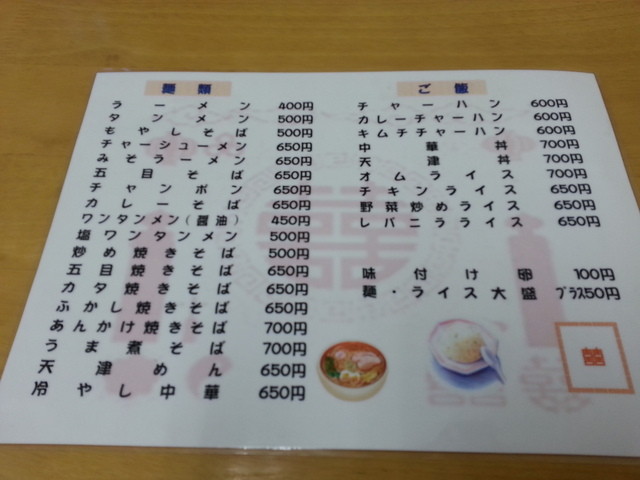 麺類
ラーメン 400円
タンメン 500円
もやしそば 500円
チャーシューメン 650円
みそラーメン 650円
五目そば 650円
チャンポン 650円
カレーそば 650円
ワンタンメン(醤油) 450円
塩ワンタンメン 500円
炒め焼きそば 500円
五目焼きそば 650円
カタ焼きそば 650円
ふかし焼きそば 650円
あんかけ焼きそば 700円
うま煮そば 700円
天津めん 650円
冷やし中華 650円
ご飯
チャーハン 600円
カレーチャーハン 600円
キムチチャーハン 600円
中華丼 700円
天津丼 700円
オムライス 700円
チキンライス 650円
野菜炒めライス 650円
レバニラライス 650円
味付け卵 100円
麺・ライス大盛 プラス50円
囍